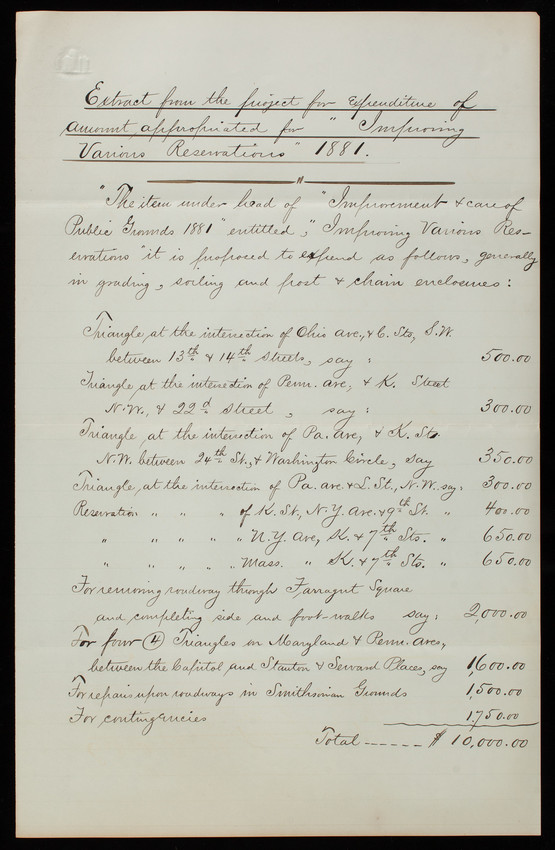 Extract from the project for expenditure of
amount appropriated for " Improving
Various Reservations" 1881.
"The item under head of "Improvement & care of
Public Grounds 1881" entitled, "Improving Various Res-
ervations" it is proposed to expend as follows, generally
in grading, soiling and post & chain enclosures:
Triangle, at the intersection of Ohio ave., & C. Sts, S.W.
between 13th & 14th streets, say: 500.00
Triangle, at the intersection of Penn. ave, & K. Street
N.W., & 22d street, say: 300.00
Triangle at the intersection of Pa. ave, & K. St.
N.W. between 24th St., & Washington Circle, say 350.00
Triangle, at the intersection of Pa. ave. & L. St., N.W. say: 300.00
Reservation " " " of K. St., N.Y. Ave. & 9th St. " 400.00
" " " " " N.Y. Ave, K. & 7th Sts. " 650.00
" " " " " Mass. " K. & 7th Sts. " 650.00
For removing roadway through Farragut Square
and completing side and foot-walks say: 2,000.00
For four (4) Triangles on Maryland & Penn. aves,
between the Capitol and Stanton & Seward Places, say 1,600.00
For repair upon roadways in Smithsonian Grounds 1,500.00
For contingencies 1,750.00
Total ------ $ 10,000.00